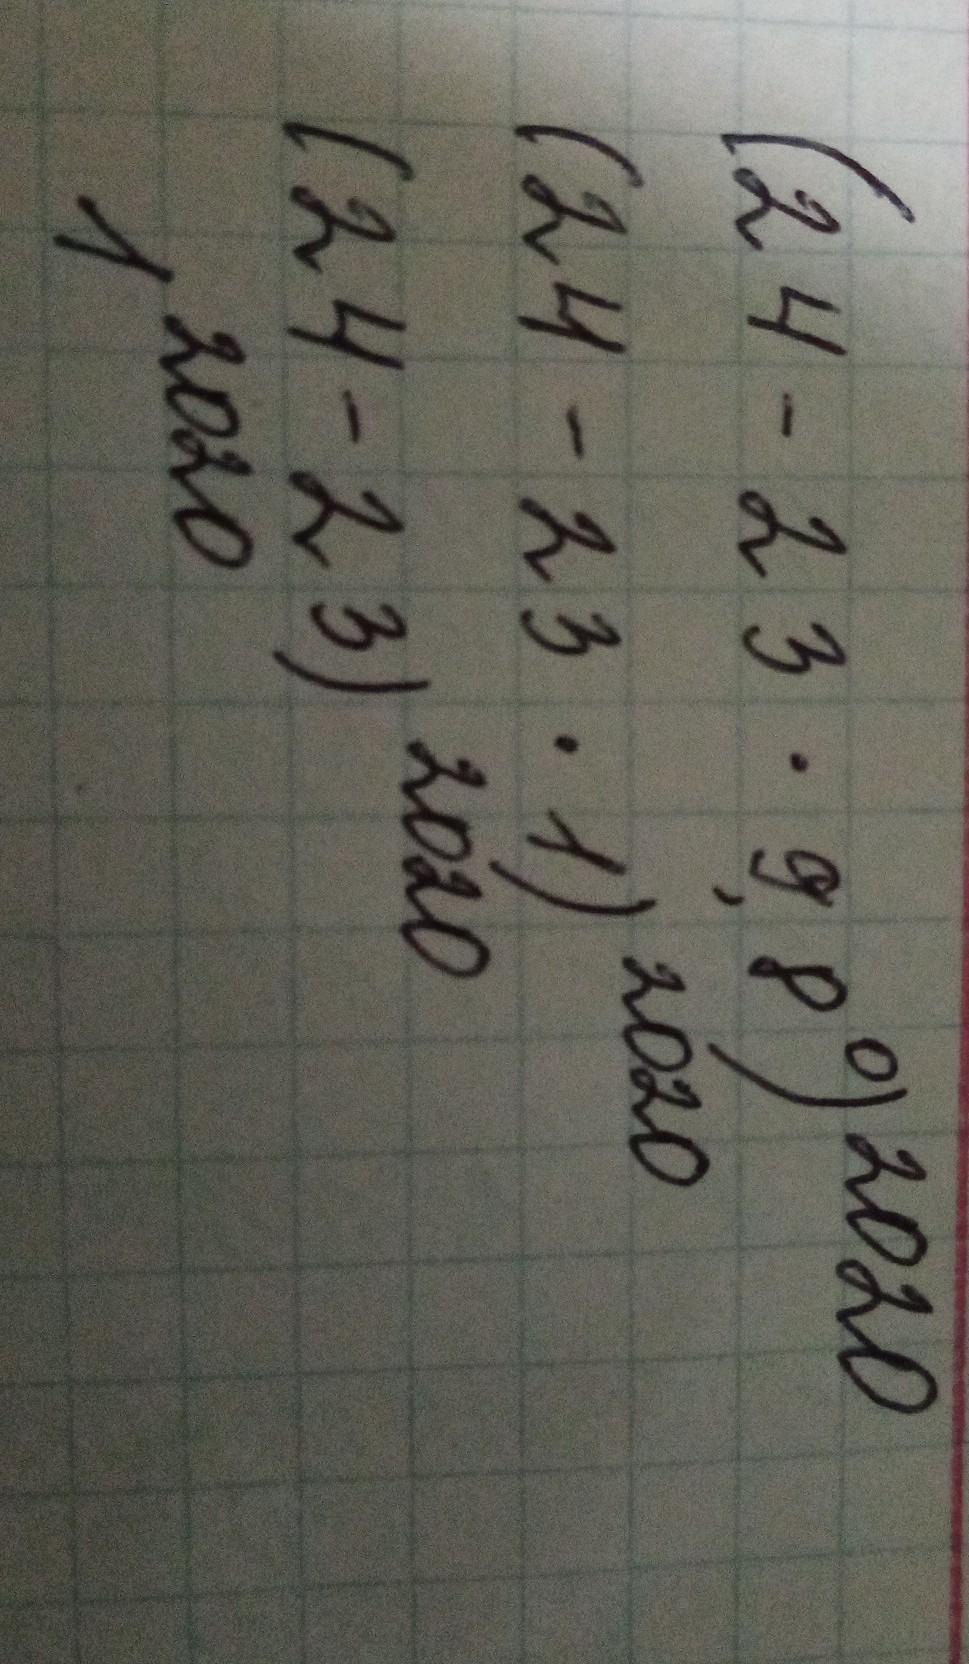 (24 - 23 · 9,8⁰)²⁰²⁰
(24 - 23 · 1)²⁰²⁰
(24 - 23)²⁰²⁰
1²⁰²⁰